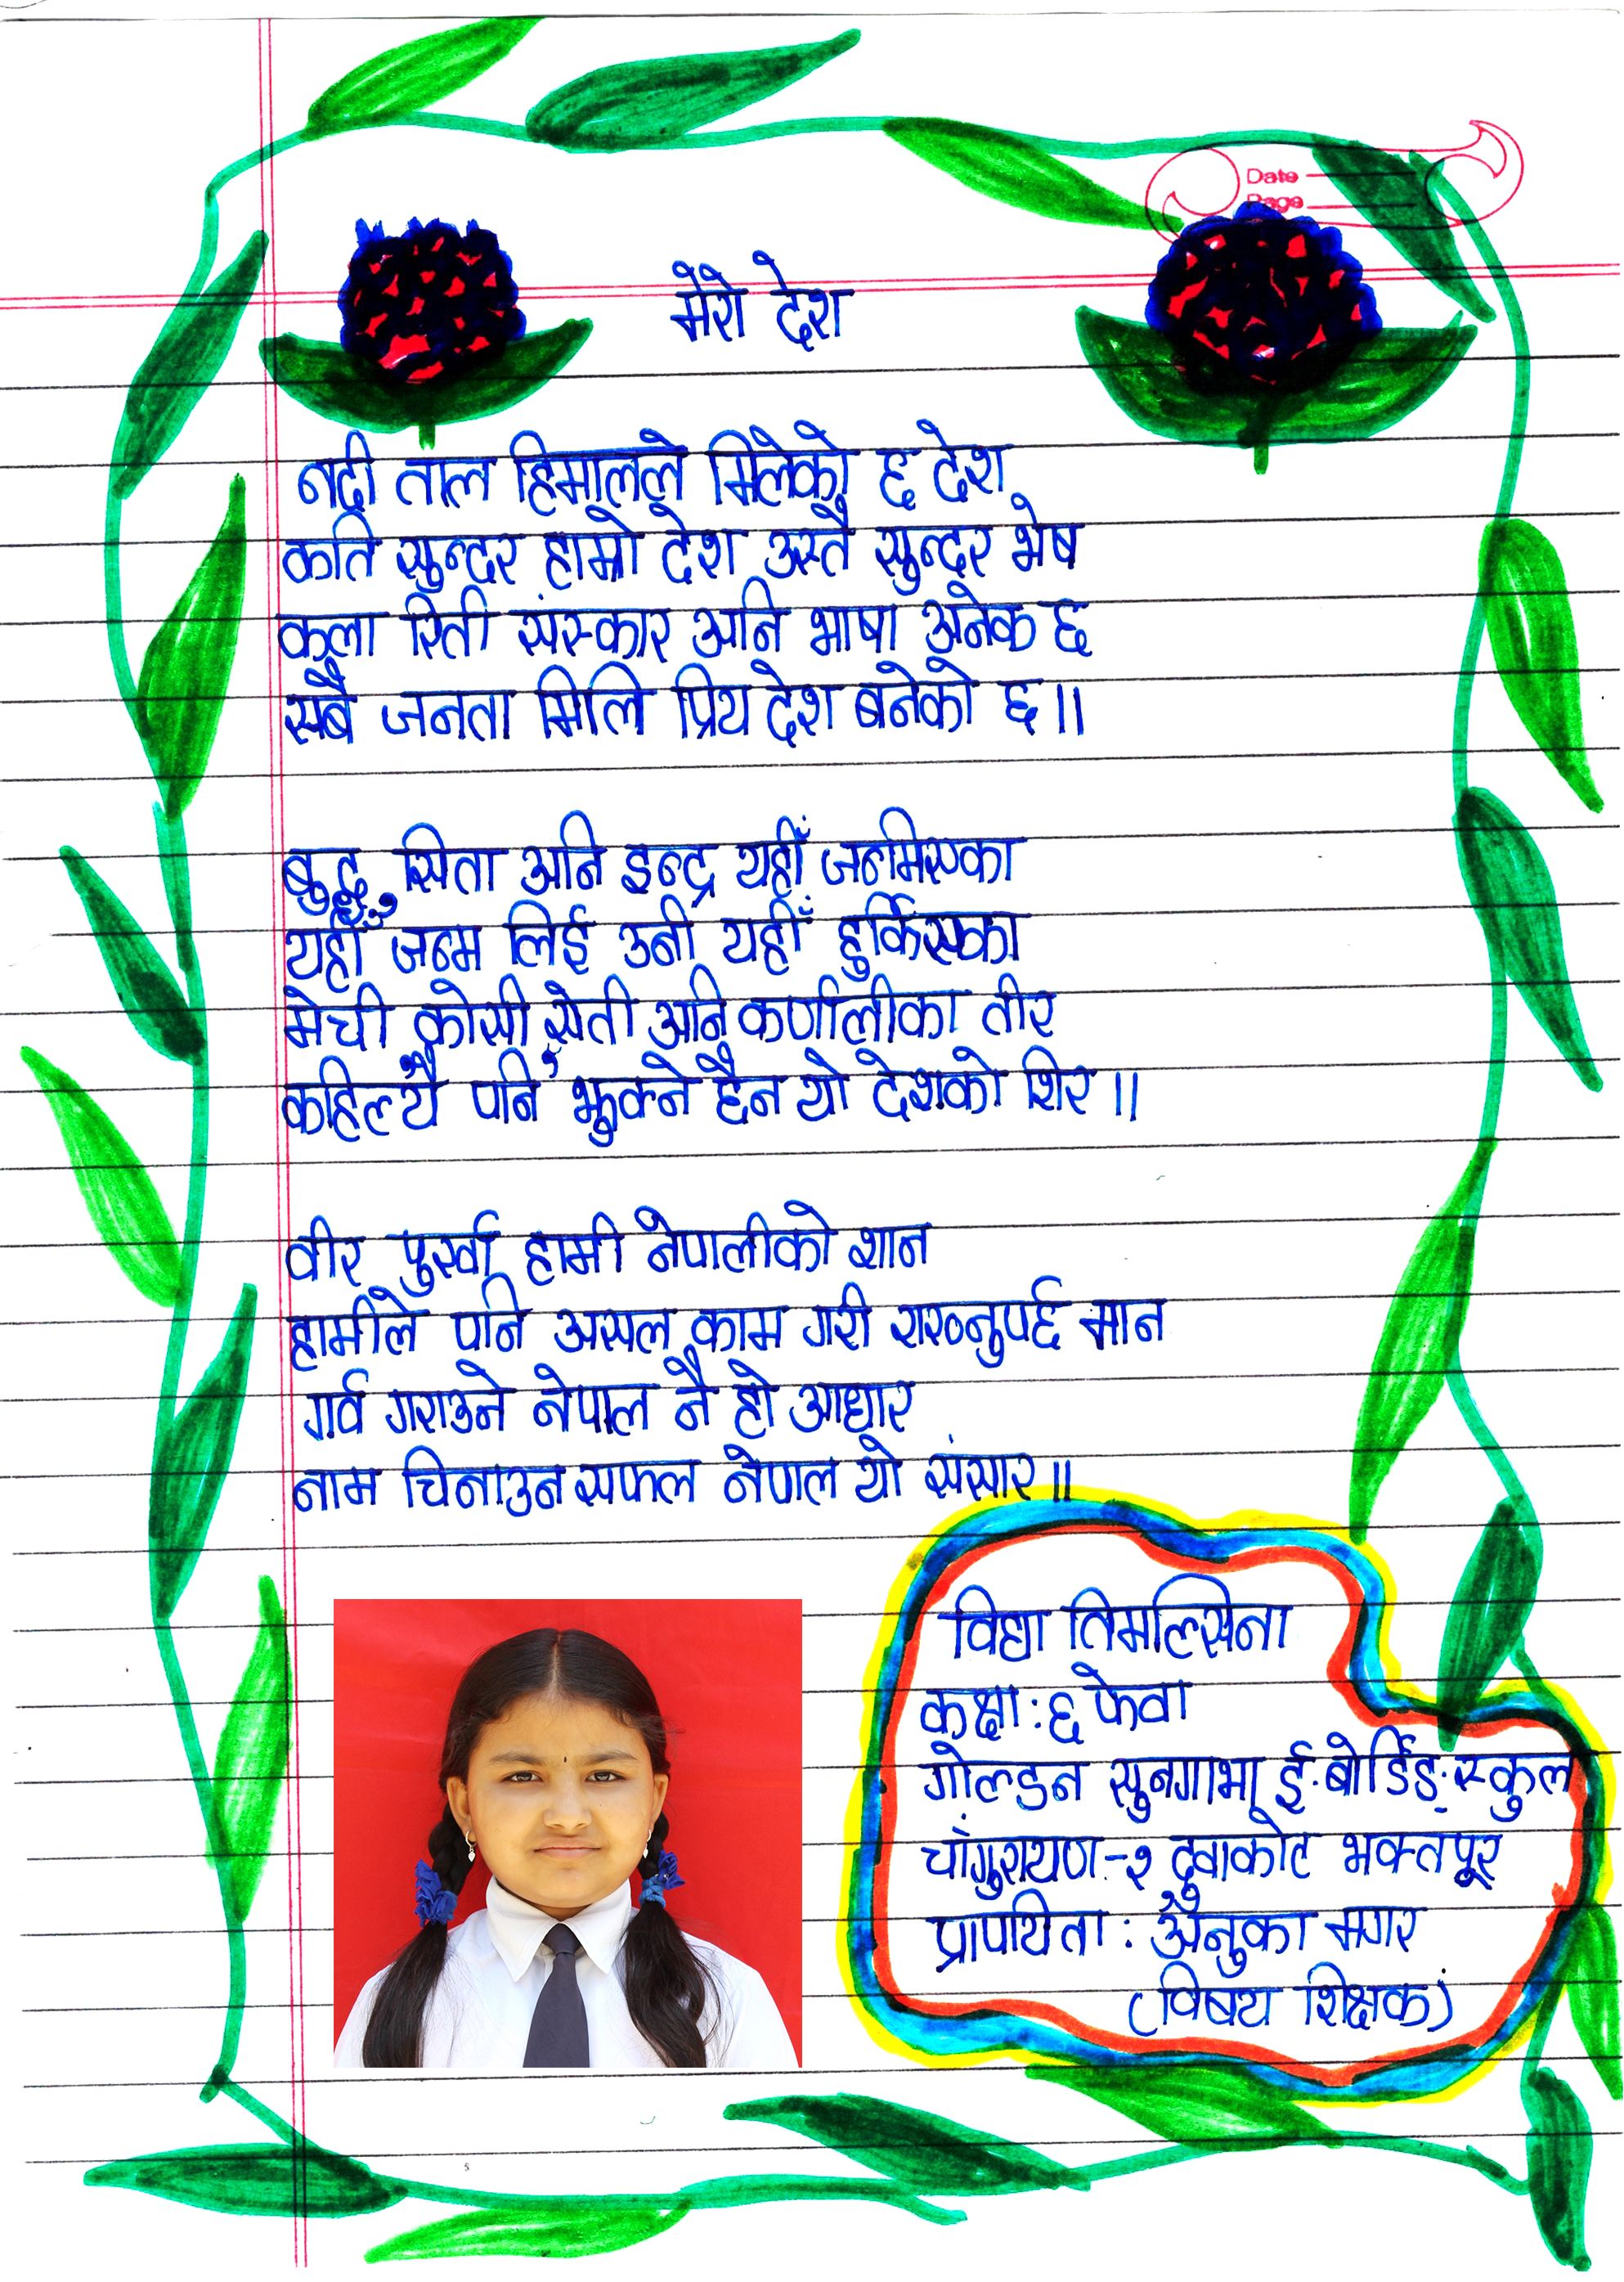 Date
Page
मेरो देश
नदी ताल हिमालले मिलेको छ देश
कति सुन्दर हाम्रो देश उस्तै सुन्दर भेष
कला रिती संस्कार अनि भाषा अनेक छ
सबै जनता मिलि प्रिय देश बनेको छ।।
बुद्ध, सिता अनि इन्द्र यहीँ जन्मिएका
यहीँ जन्म लिई उनी यहीँ हुर्किएका
मेची कोसी सेती अनि कर्णालीका तीर
कहिल्यै पनि झुक्ने छैन यो देशको शिर।।
वीर पुर्खा हामी नेपालीको शान
हामीले पनि असल काम गरी राख्नुपर्छ मान
गर्व गराउने नेपाल नै हो आधार
नाम चिनाउन सफल नेपाल यो संसार॥
विद्या तिमल्सिना
कक्षा : ६ फेवा
गोल्डन सुनगाभा ई. बोर्डिङ स्कुल
चाँगुरायण-२ दुवाकोट भक्तपूर
प्रापयिता : अँनुका मगर
(विषय शिक्षक)